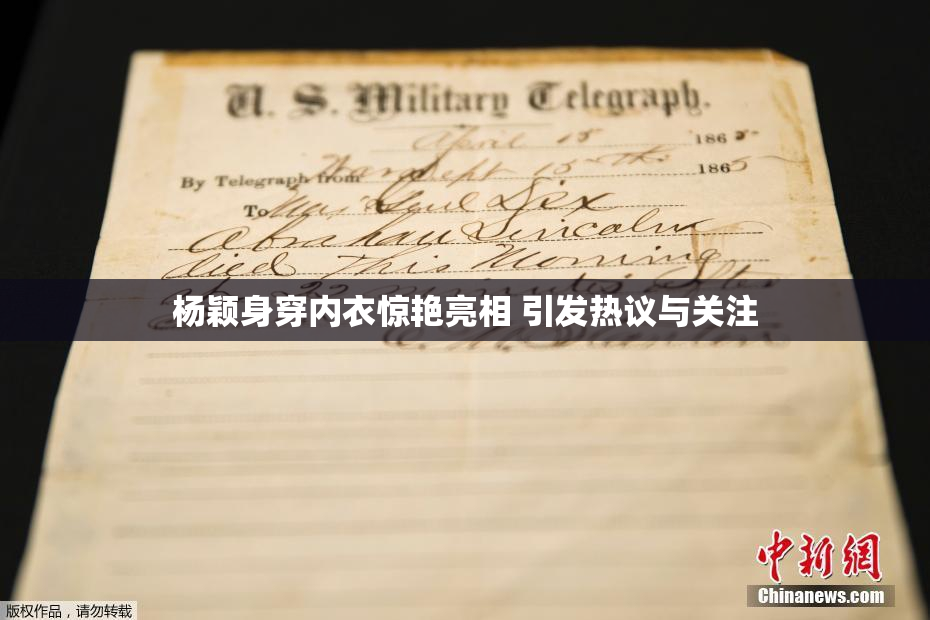 U. S. Military Telegraph.
April 15 1865
By Telegraph from War Dept 15th 1865
To Maj Genl Dix
Abraham Lincoln
died This Morning
22 minutes after
杨颖身穿内衣惊艳亮相 引发热议与关注
E. M. Stanton
中新網
Chinanews.com
版权作品,请勿转载